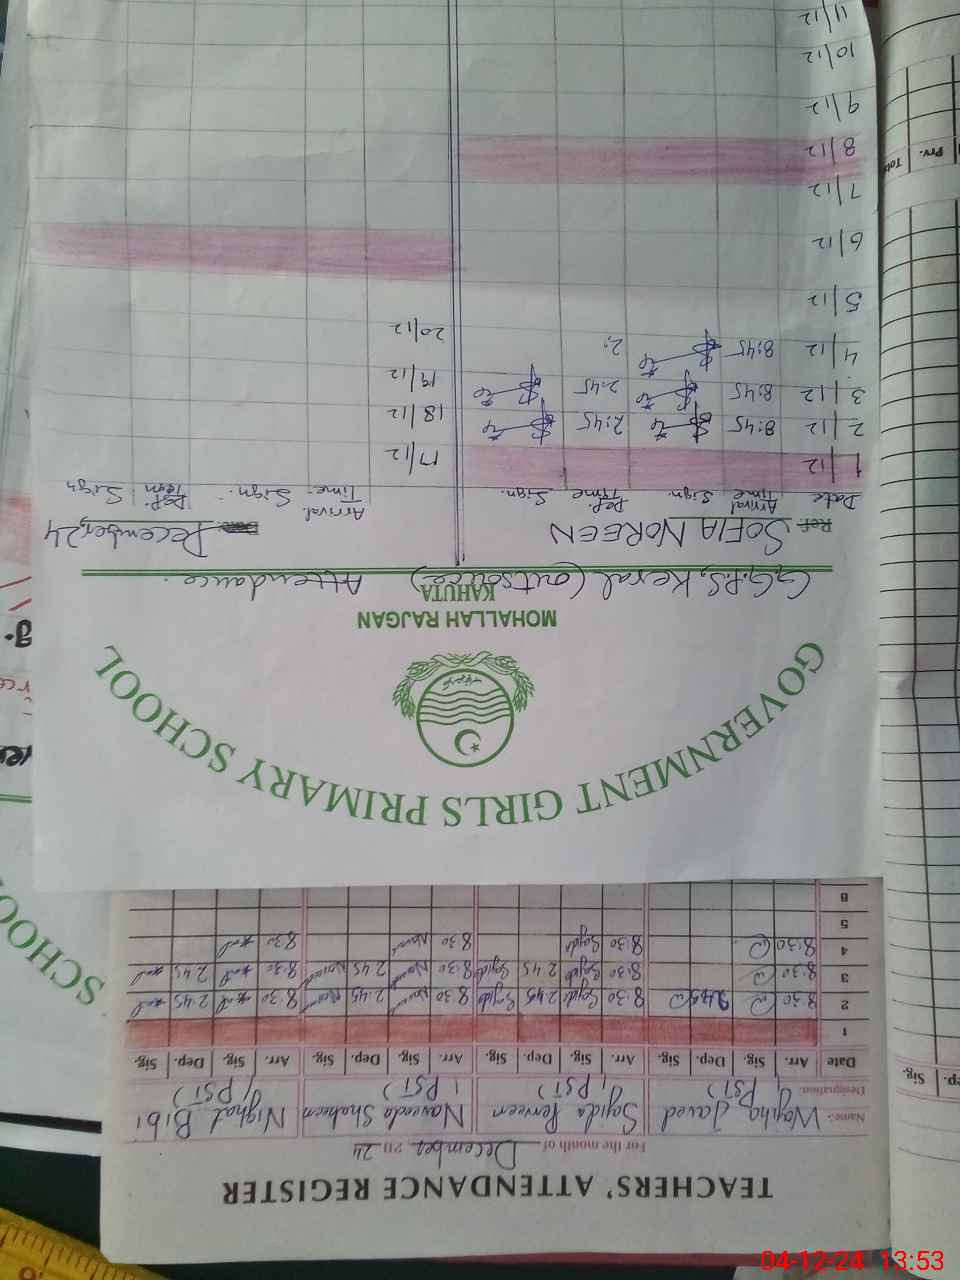 TEACHERS' ATTENDANCE REGISTER
For the month of December 2024
Name:- Wajiha Javed Sajida Perveen Naveeda Shaheen Nighat Bibi
Designation. (PST) (PST) (PST) (PST)
Date Arr. Sig. Dep. Sig. Arr. Sig. Dep. Sig. Arr. Sig. Dep. Sig. Arr. Sig. Dep. Sig.
1
2 8:30 8:30 Sajida 2:45 Sajida 8:30 2:45 8:30 2:45
3 8:30 8:30 Sajida 2:45 Sajida 8:30 2:45 8:30 2:45
4 8:30 8:30 Sajida 8:30 8:30
5
6
GOVERNMENT GIRLS PRIMARY SCHOOL
MOHALLAH RAJGAN
KAHUTA
G.G.P.S, Keral (outsource) Attendance.
SOFIA NOREEN December, 24
Date Arrival Time Sign. Dep. Time Sign. Arrival Time. Sign. Dep. Time Sign
1/12 17/12
2/12 8:45 2:45 18/12
3/12 8:45 2:45 19/12
4/12 8:45 2: 20/12
5/12
6/12
7/12
8/12
9/12
10/12
11/12
SCHOO
Prv.
ep. Sig.
04-12-24 13:53